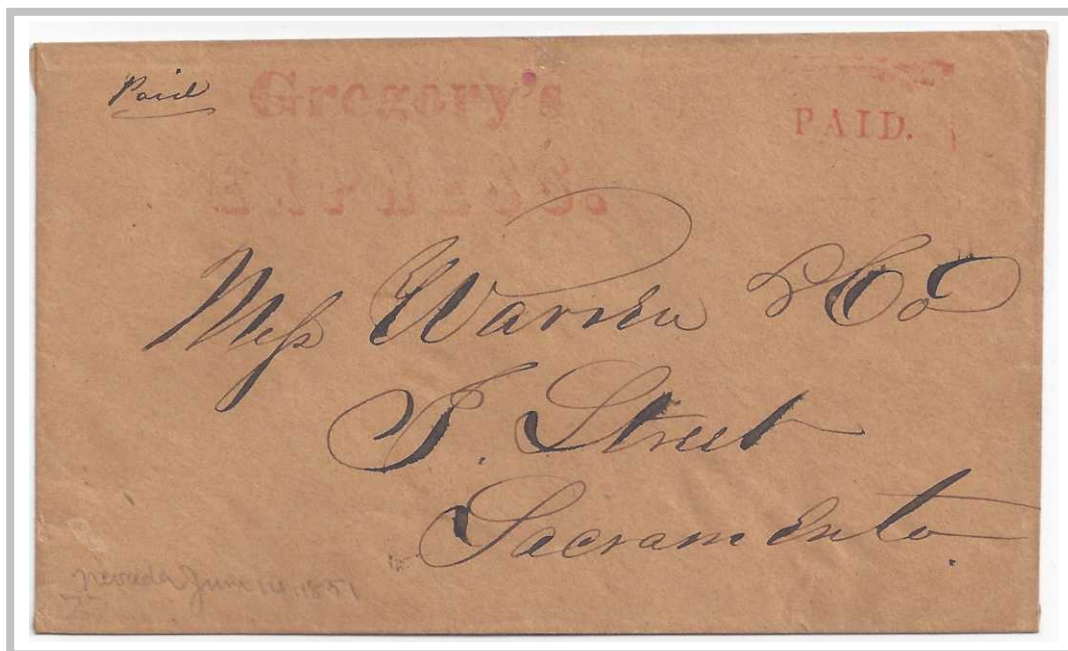 Paid
Gregory's
EXPRESS.
PAID.
Mess Warren & Co
J. Street
Sacramento.
Nevada June 14, 1851